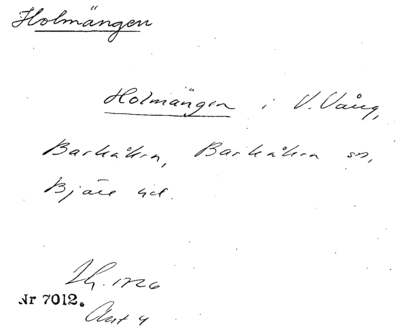 Holmängen
Holmängen i V. Vång,
Barkåkra, Barkåkra sn,
Bjäre hd.
Lh. 1726
Nr 7012.
Akt 4